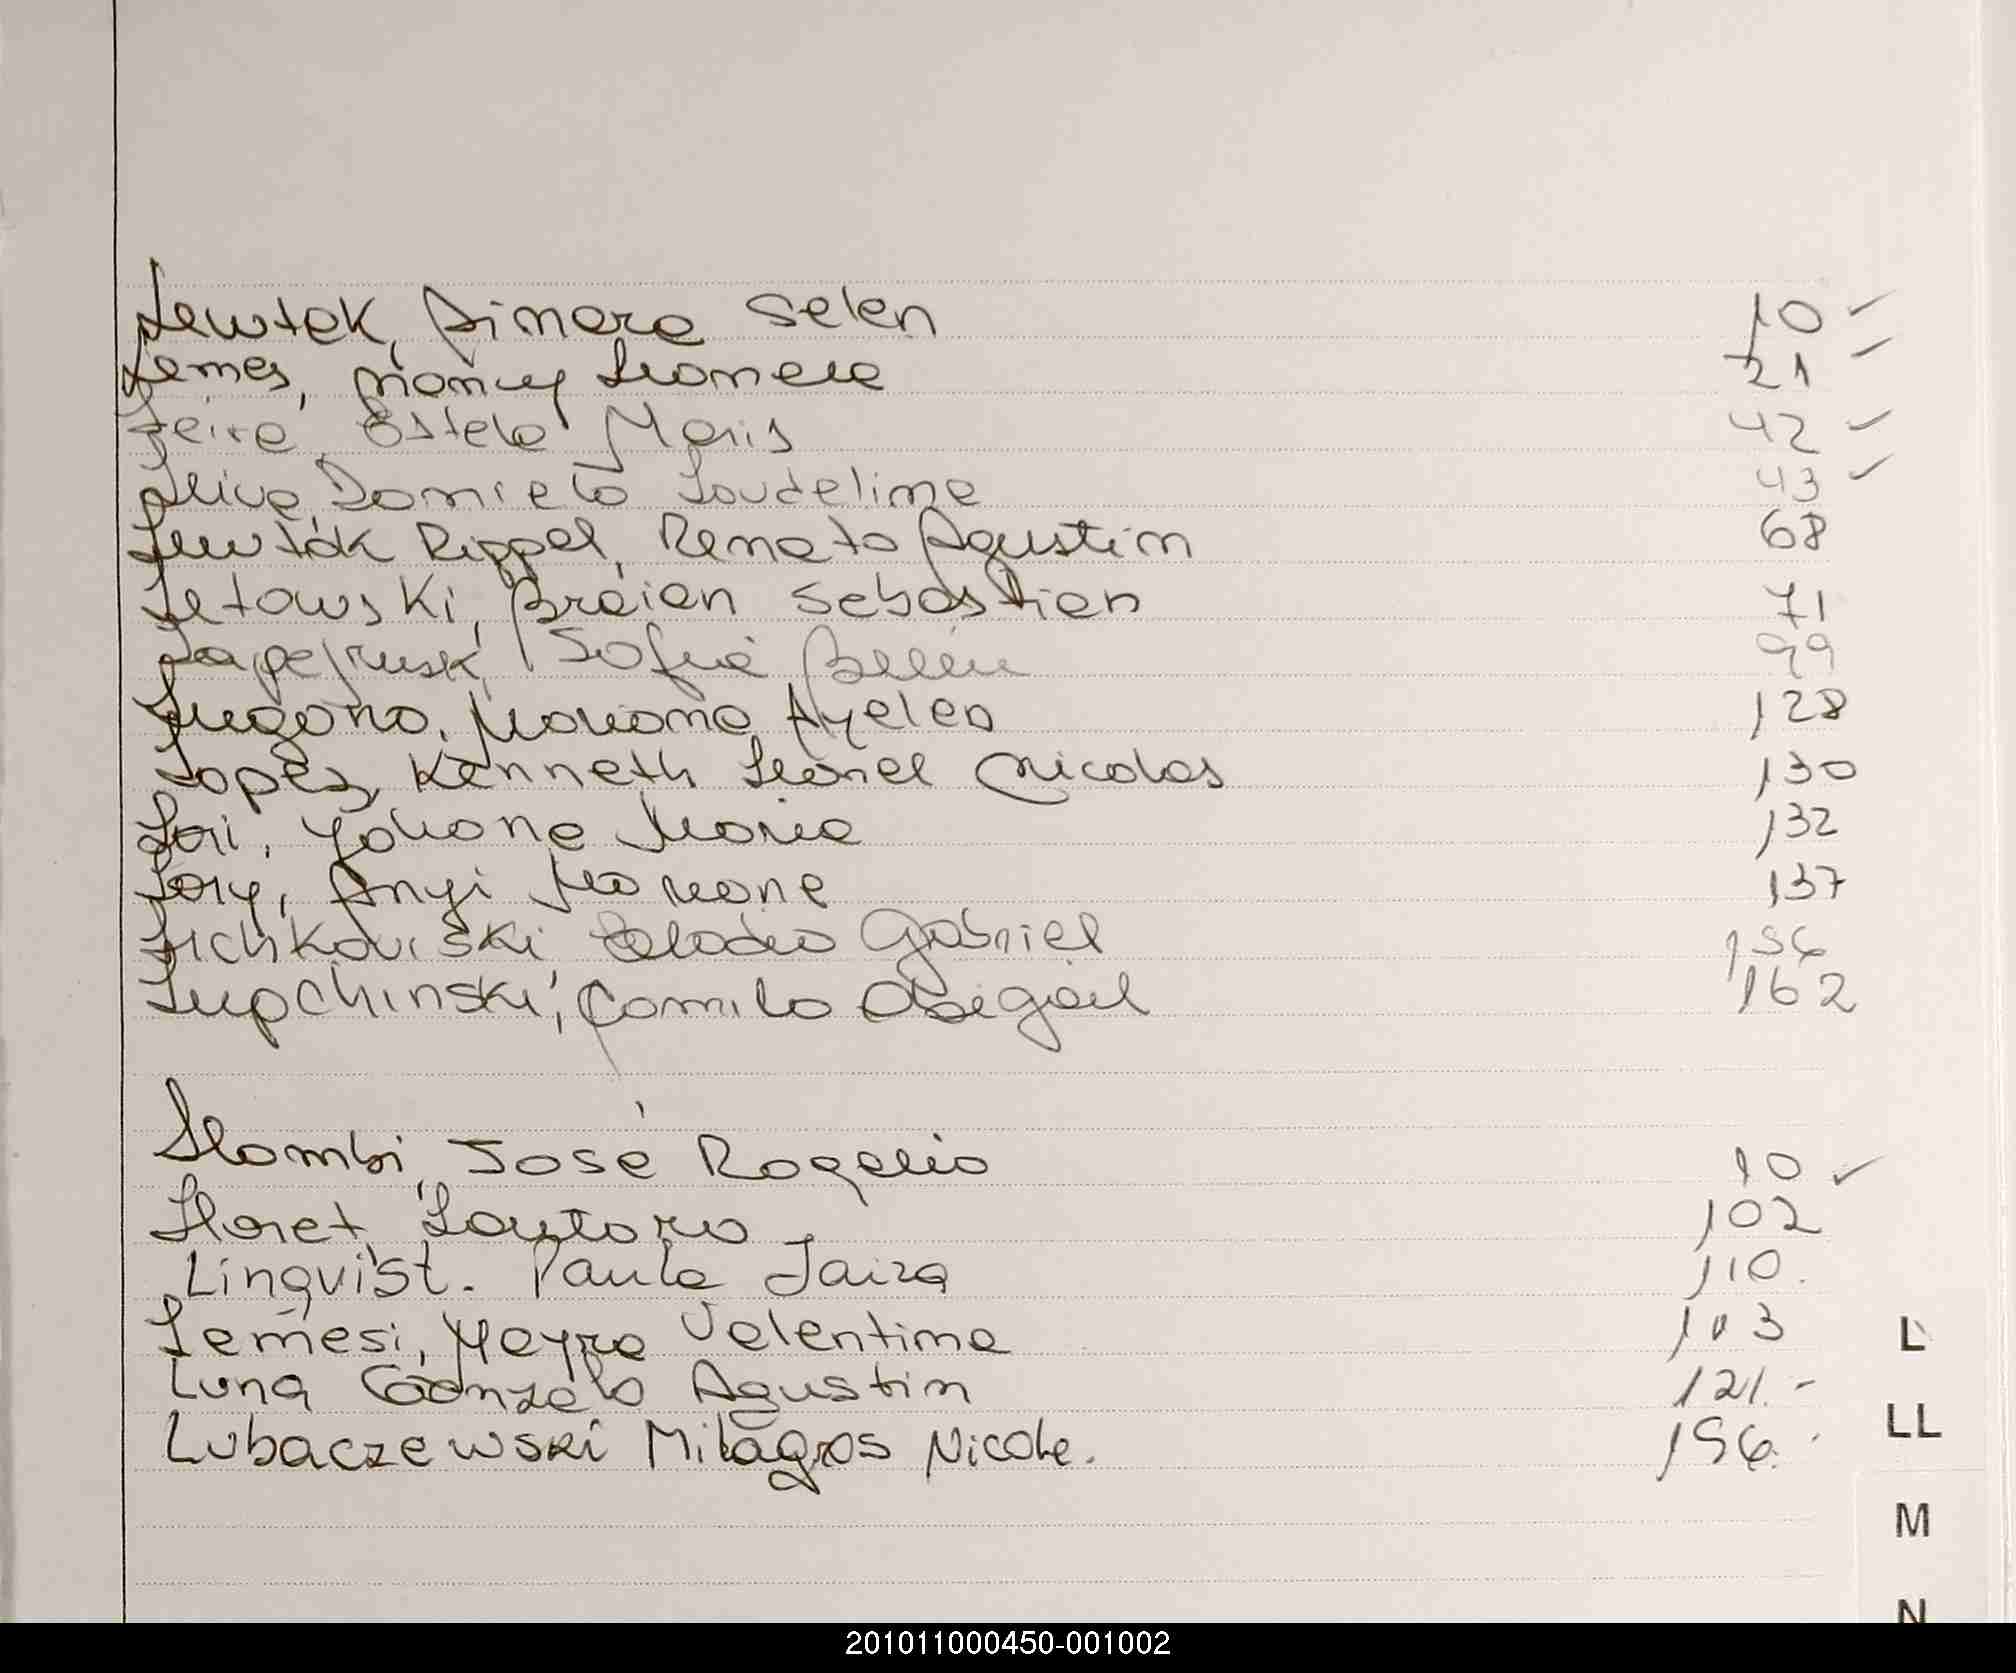 Lewtak, Aimara Selen 10 ✓
Lemes, Nancy Leonela 21 ✓
Leira, Estela Maris 42 ✓
Leiva, Daniela Laudelina 43 ✓
Lewtak Rippel, Renato Agustin 68
Letowski, Braian Sebastian 71
Sofia Belén 99
Lugano, Mariana Ayelen 128
Lopez, Kenneth Leonel Nicolas 130
Lori, Yohana Maria 132
Lory, Anyi Mariana 137
Lichkoviski, Gabriel 156
Lupchinski, Camila Abigail 162
Llambi, José Rogelio 10 ✓
Lloret, Lautaro 102
Linqvist. Paula Jaiza 110.
Lemesi, Mayra Valentina 103
Luna Gonzalo Agustin 121.-
Lubaczewski Milagros Nicole. 156.
L
LL
M
N
201011000450-001002